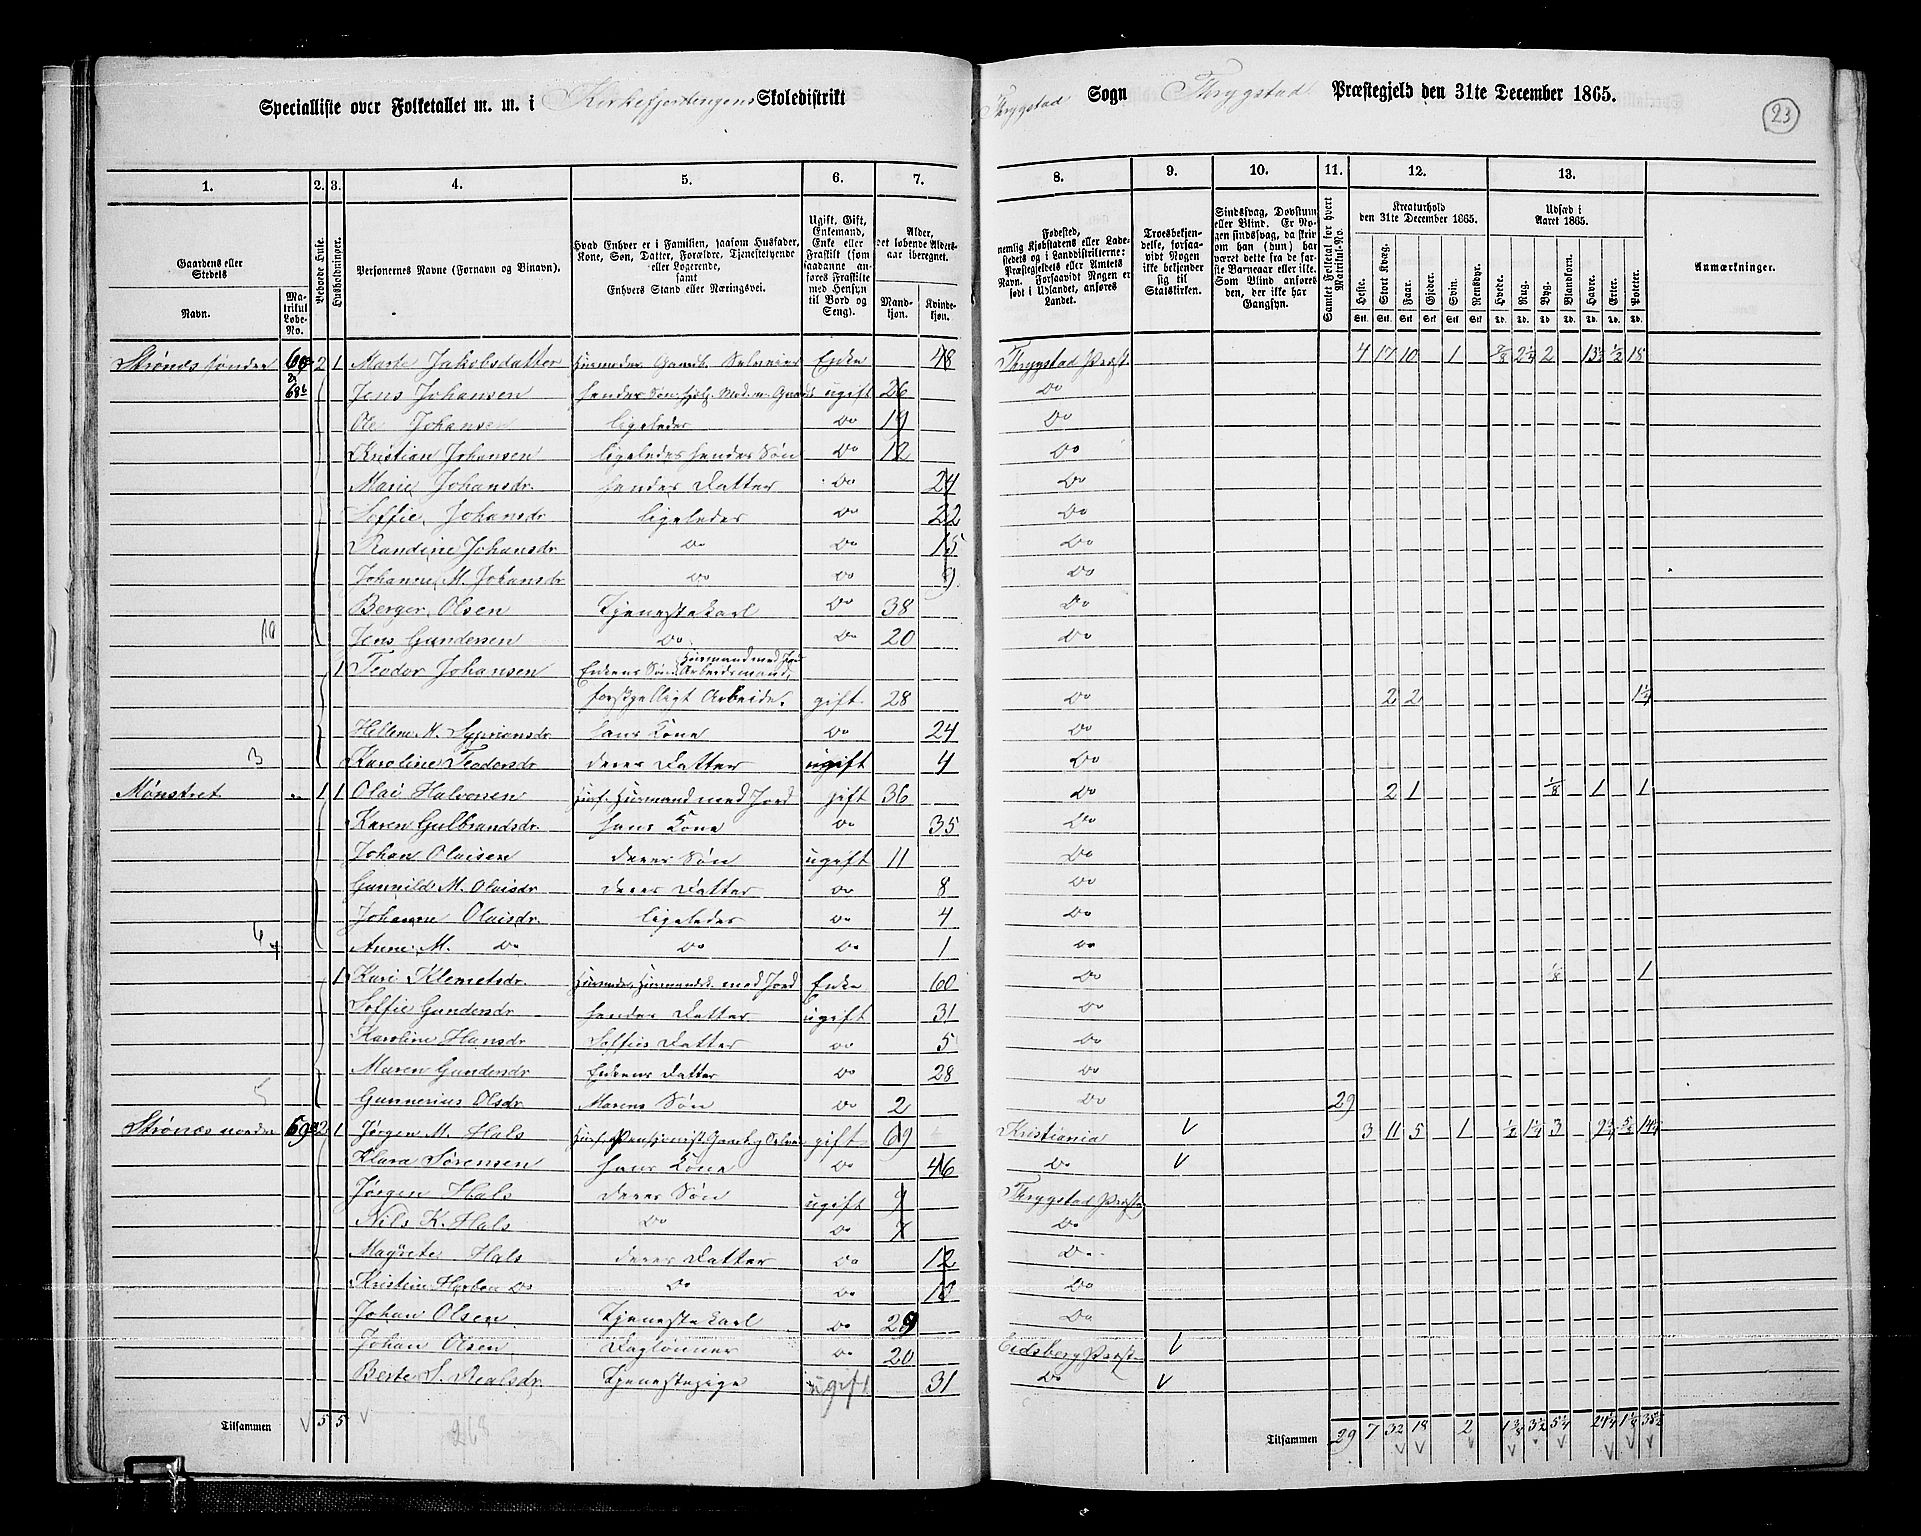 Specialliste over Folketallet m. m. i Kirkefjerdingens Skoledistrikt Thrygstad Sogn Thrygstad Præstegjeld den 31te December 1865.
23
1. 2. 3. 4. 5. 6. 7. 8. 9. 10. 11. 12. 13.
Gaardens eller Stedets
Navn.
Matrikul Løbe-No.
Beboede Huse.
Husholdninger.
Personernes Navne (Fornavn og Binavn).
Hvad Enhver er i Familien, saasom Husfader, Kone, Søn, Datter, Forældre, Tjenestetyende eller Logerende, samt Enhvers Stand eller Næringsvei.
Ugift, Gift, Enkemand, Enke eller Fraskilt (som saadanne anføres Fraskilte med Hensyn til Bord og Seng).
Alder, det løbende Aldersaar iberegnet.
Mandkjøn. Kvindekjøn.
Fødested, nemlig Kjøbstadens eller Ladestedets og i Landdistrikterne: Præstegjeldets eller Amtets Navn. Forsaavidt Nogen er født i Udlandet, anføres Landet.
Troesbekjendelse, forsaavidt Nogen ikke bekjender sig til Statskirken.
Sindssvag, Døvstum eller Blind. Er Nogen sindssvag, da skrives om han (hun) har været dette fra de første Barneaar eller ikke. Som Blind anføres den, der ikke har Gangsyn.
Samlet Folketal for hvert Matrikul-No.
Kreaturhold den 31te December 1865.
Heste. Stort Kvæg. Faar. Gjeder. Svin. Rensdyr.
Udsæd i Aaret 1865.
Hvede. Rug. Byg. Blandkorn. Havre. Erter. Poteter.
Anmærkninger.
Strønes søndre 68a 2 1 Marte Jakobsdatter Husmoder Gaardb. Selveier Enke 48 Thrygstad Præst 4 17 10 1 7/8 2 1/4 2 13 1/2 1/2 18
68b Jens Johansen hendes Søn hjelp. Mod. m. Gaards ugift 26 Do
Ole Johansen ligeledes Do 19 Do
Kristian Johansen ligeledes hendes Søn Do 12 Do
Marie Johansdr. hendes Datter Do 24 Do
Soffie Johansdr ligeledes Do 22 Do
Randine Johansdr Do Do 15 Do
Johanne M. Johansdr Do Do 9 Do
Berger Olsen Tjenestekarl Do 38 Do
10 Jens Gundersen Do Do 20 Do
1 Teodor Johansen Enkens Søn Husmand med Jord Arbeidsmand,
forskjelligt Arbeide. gift 28 Do 2 2 1 1/4
Hellene M. Sypriansdr hans Kone Do 24 Do
3 Karoline Teodorsdr deres Datter ugift 4 Do
Mønstret 1 1 Olai Halvorsen Husf. Husmand med Jord gift 36 Do 2 1 1/8 1 1
Karen Gulbrandsdr. hans Kone Do 35 Do
Johan Olaisen deres Søn ugift 11 Do
Gunnild M. Olaisdr deres Datter Do 8 Do
Johanne Olaisdr. ligeledes Do 4 Do
6 Anne M. Do Do Do 1 Do
1 Kari Klemetsdr. Husmoder Husmandsk. med Jord Enke 60 Do 1/8 1
Soffie Gundersdr hendes Datter ugift 31 Do
Karoline Hansdr Soffies Datter Do 5 Do
Maren Gundersdr Enkens Datter Do 28 Do
5 Gunnerius Olsdr. Marens Søn Do 2 Do 29
Strønes nordre 69a 2 1 Jørgen M. Hals Husf. Pensjonist Gaardb. Selvei gift 69 Kristiania V 3 11 5 1 1/2 1 1/4 3 14 1/4
Klara Sørensen hans Kone Do 46 Do V
Jørgen Hals deres Søn ugift 9 Thrygstad Præsteg
Nils K. Hals Do Do 7 Do
Magrete Hals deres Datter Do 12 Do
Kristine Do Do Do 10 Do
Johan Olsen Tjenestekarl Do 29 Do
Johan Olsen Daglønner Do 20 Eidsberg Præst V
Berte S. Tjenestepige ugift 31 Do V
Tilsammen 5 5 268 Tilsammen 29 7 32 18 2 1 3/8 3 1/2 5 1/4 24 1/4 1 1/8